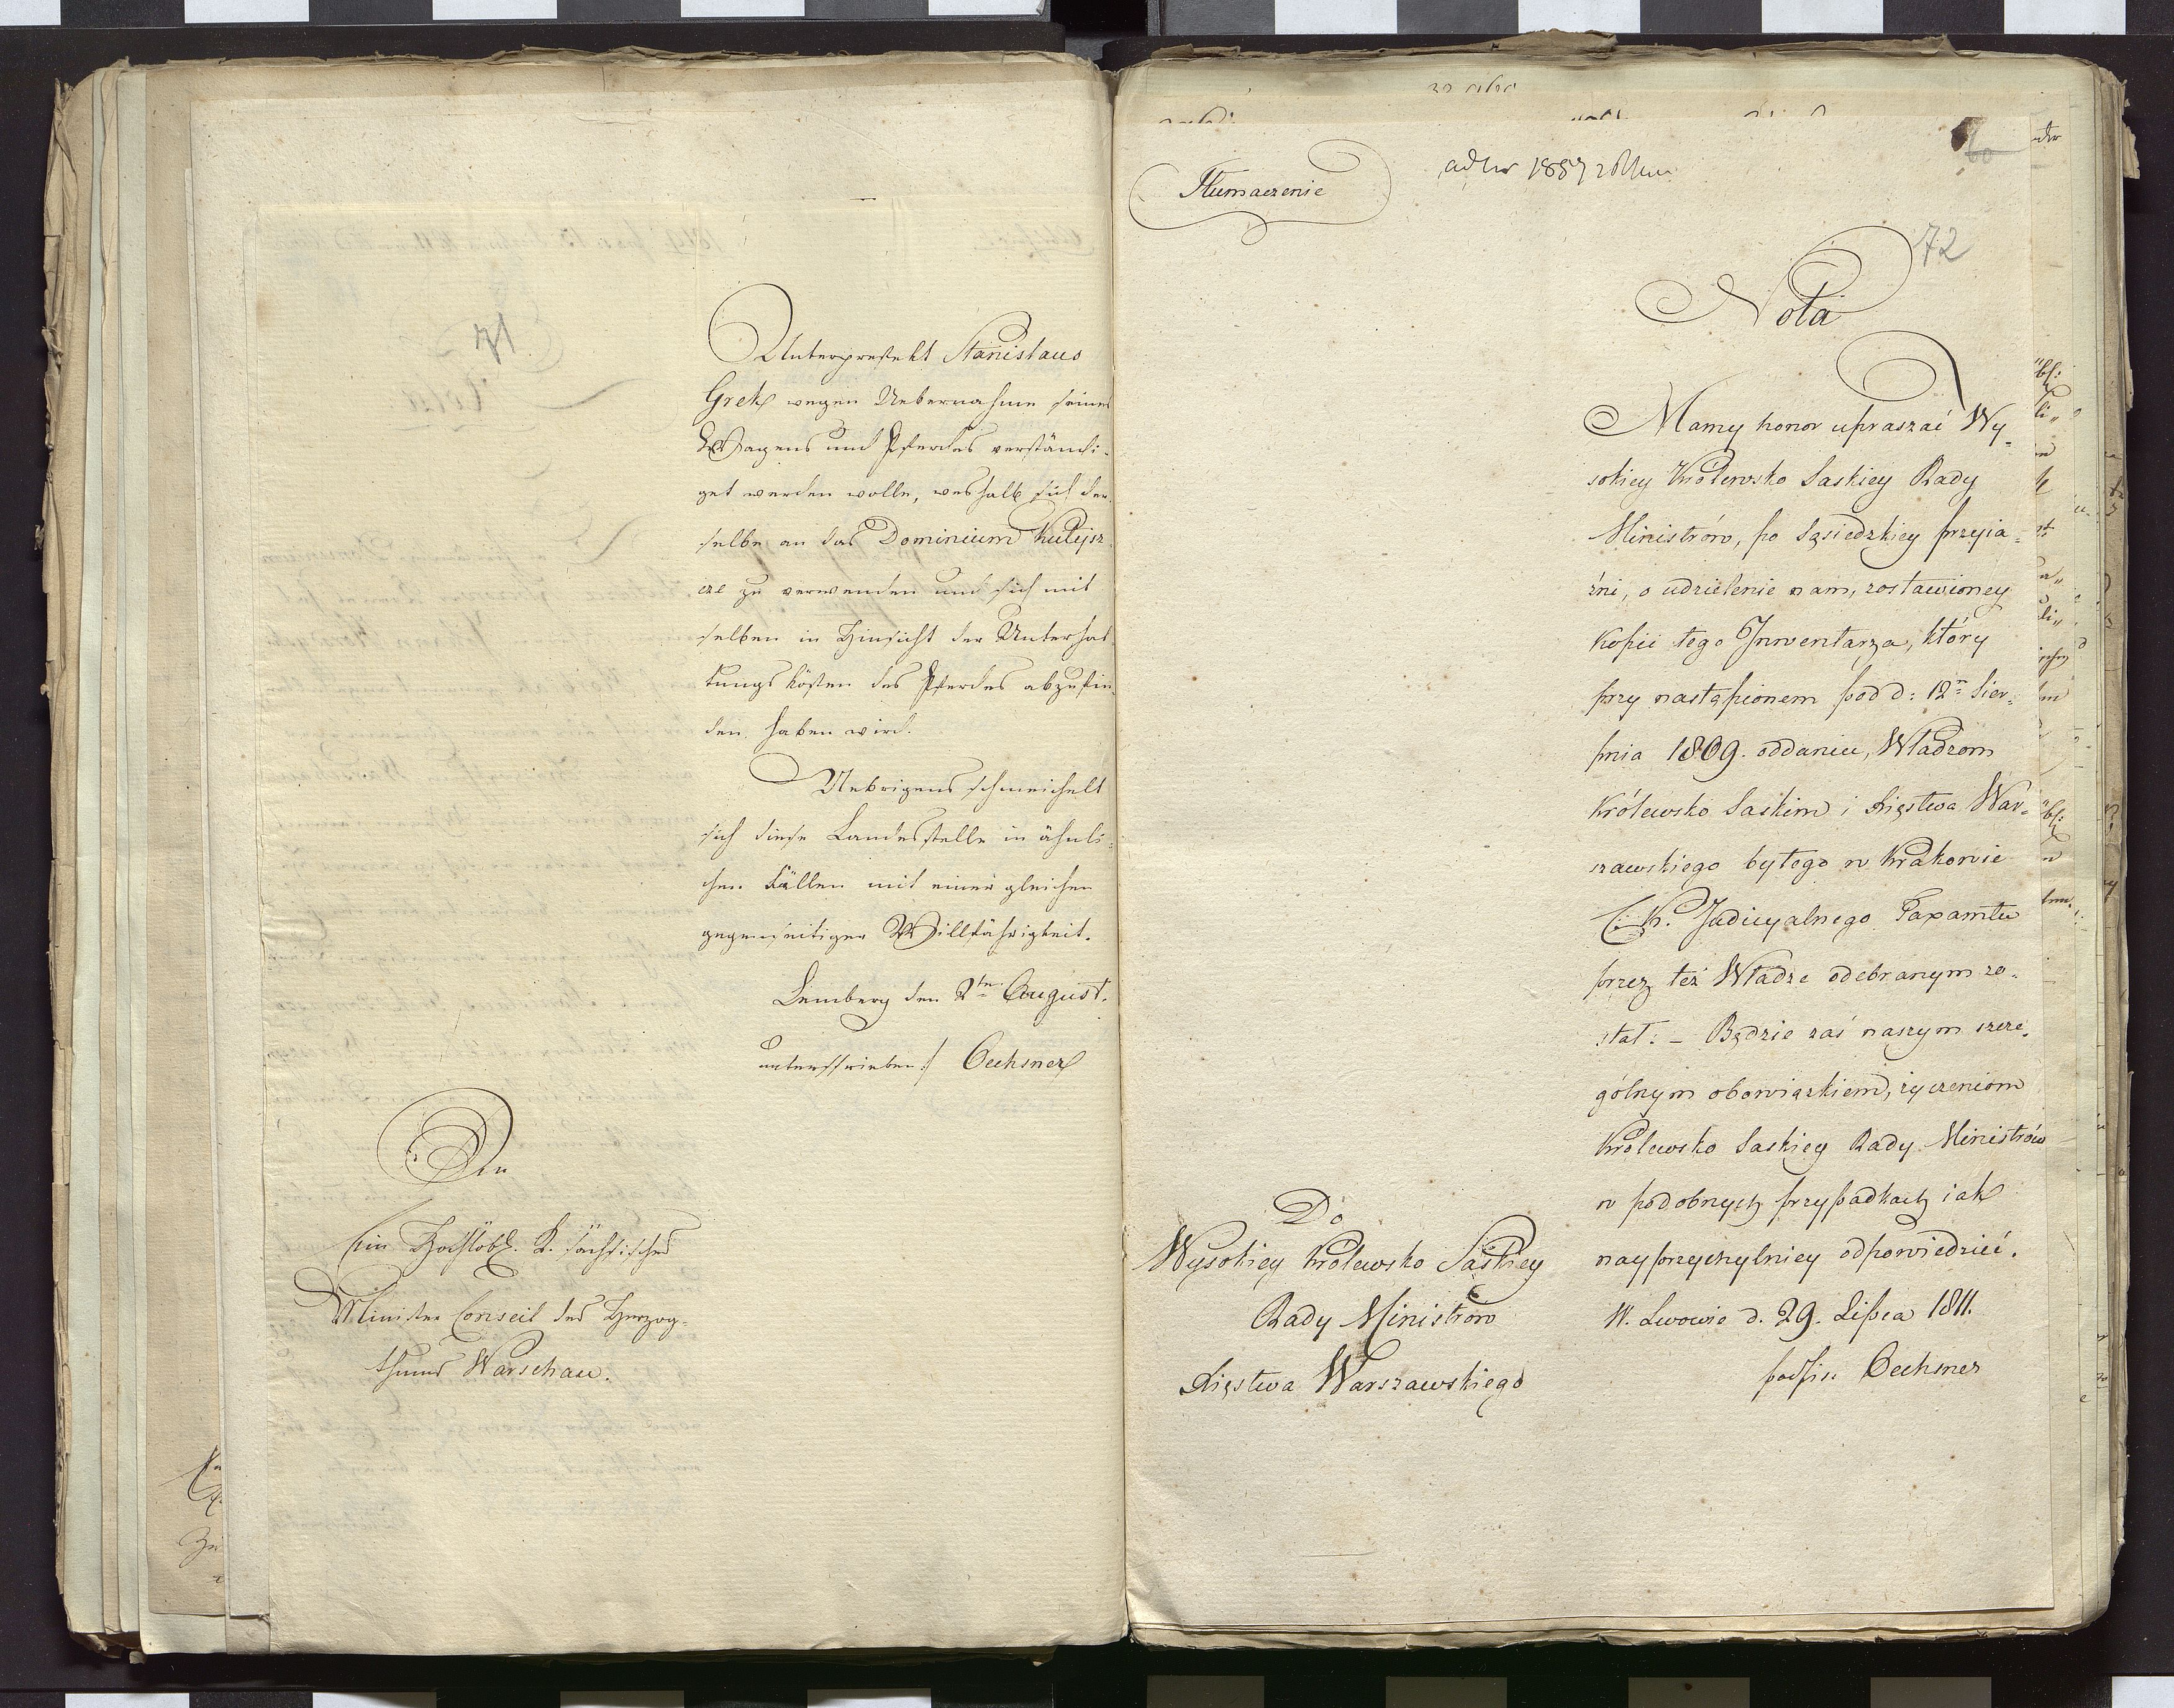 Unterprefekt Stanislaus
Grek wegen Uebernahme seines
Wagens und Pferdes verständi-
get werden wolle, weshalb sich der-
selbe an das Dominium Kulysz-
cze zu verwenden und sich mit
selben in Hinsicht der Unterhal-
tungskösten des Pferdes abzufin-
den haben wird.
Uebrigens schmeichelt
sich diese Landesstelle in ähnli-
chen Fällen mit einer gleichen
gegenseitigen Willfährigkeit.
Lemberg den 2ten August.
unterschrieben:/ Oechsner
An
Ein Hochlöbl. K. sächsisches
Minister Conseil des Herzog-
thums Warschau.
Tłumaczenie
60
72
Nota
Mamy honor upraszać Wy-
sokiey Królewsko Saskiey Rady
Ministrów, po Sąsiedzkiey przyia-
źni, o udzielenie nam, zostawioney
Kopii tego Inwentarza, który
przy nastąpionem pod d: 12n Sier-
pnia 1809. oddaniu, Władzom
Królewsko Saskim i Xięstwa War-
szawskiego byłego w Krakowie
C: K. Judicyalnego Taxamtu
przez też Władze odebranym zo-
stał. – Będzie zaś naszym szcze-
gólnym obowiązkiem, życzeniom
Królewsko Saskiey Rady Ministrów
w podobnych przypadkach iak
nayprzychylniey odpowiedzieć.
W. Lwowie d. 29. Lipca 1811.
podpis: Oechsner
Do
Wysokiey Królewsko Saskiey
Rady Ministrów
Xięstwa Warszawskiego